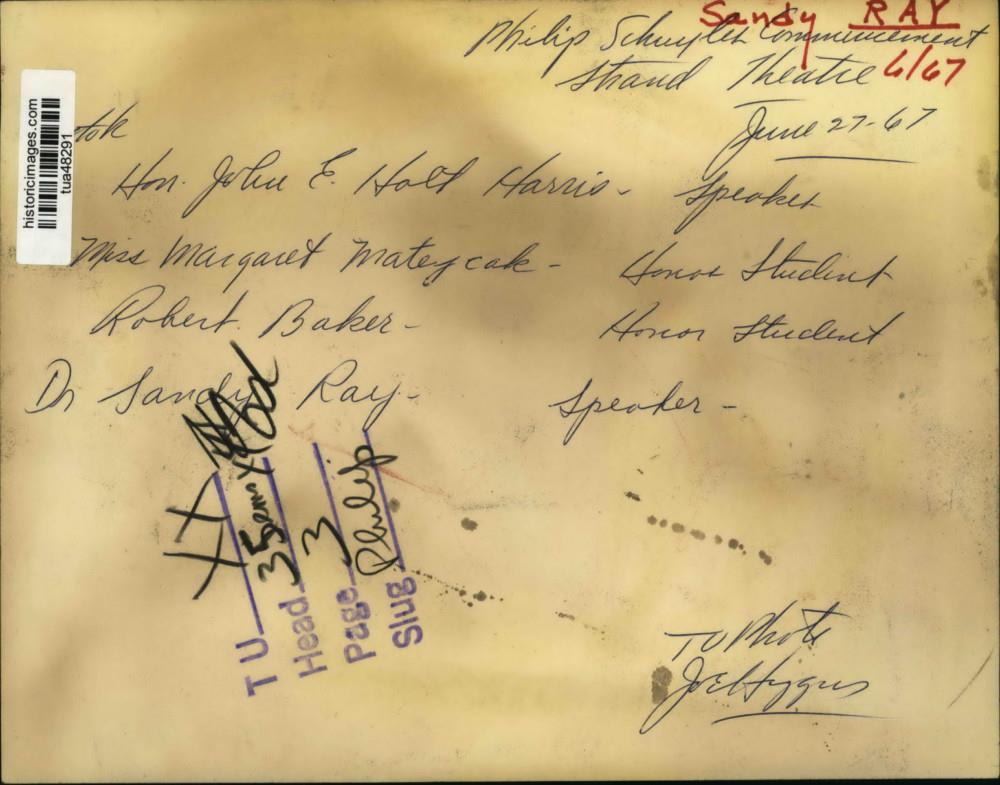 Sandy RAY
Philip Schuyler Commencement
Strand Theatre 6/67
June 27-67
historicimages.com
tua48291
Hon. John E. Holt Harris - Speaker
Miss Margaret Mateycak - Honor Student
Robert Baker - Honor Student
Dr Sandy Ray - Speaker -
TU XX
Head 35
Page 3
Slug Philip
TU Photo
Joe Higgins